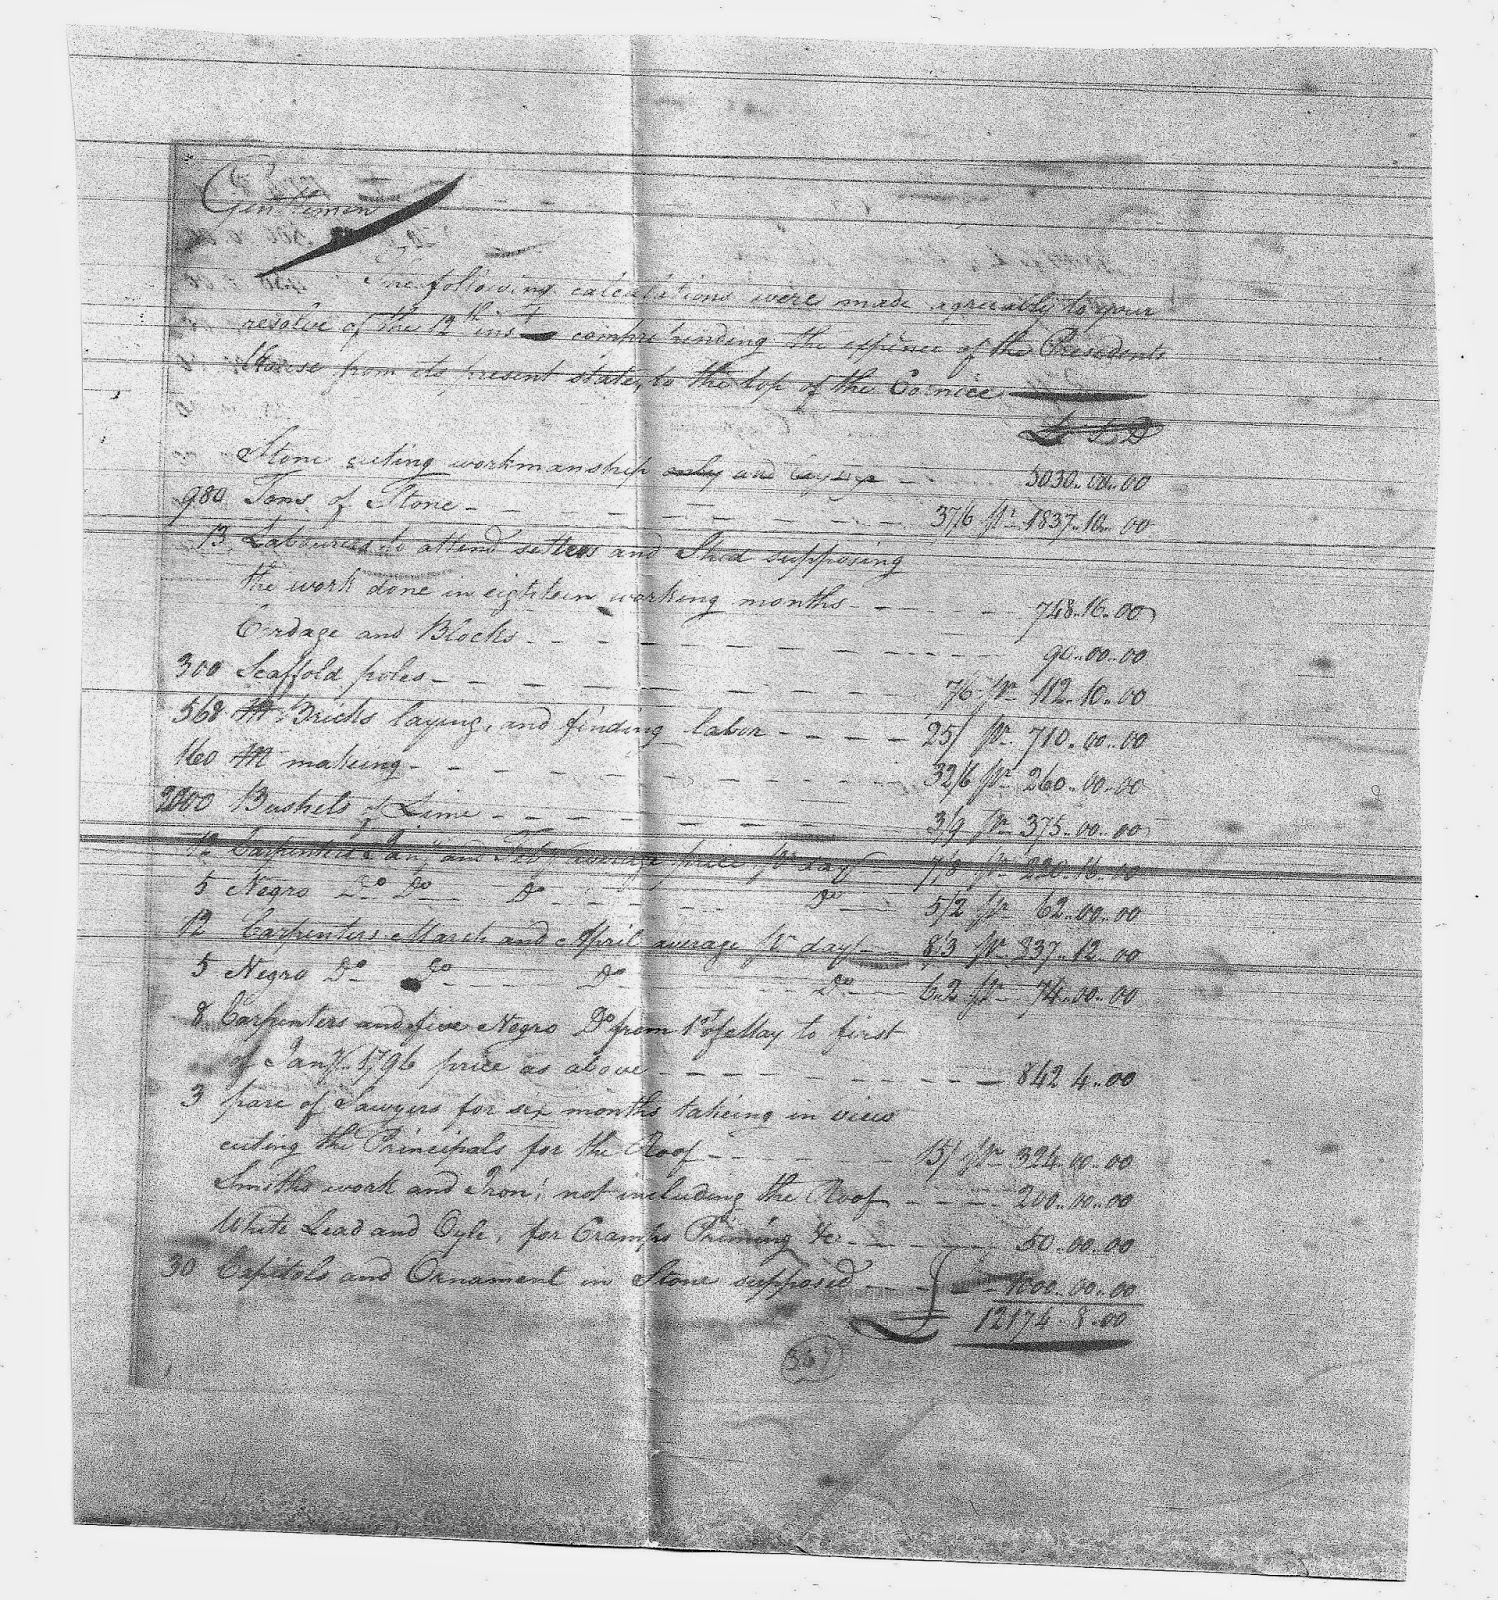 Gentlemen
The following calculations were made agreeably to your
resolve of the 12th inst comprehending the expence of the Presidents
House from its present state, to the top of the Cornice
L S D
Stone cuting workmanship only and - - 5030..00..00
980 Tons of Stone - - - - 37/6 pr 1837..10..00
13 Labourers to attend setters and Shed supposing
the work done in eighteen working months - - - 748..16..00
Cordage and Blocks - - - - 90..00..00
300 Scaffold poles - - - - 7/6 pr 112..10..00
568 M Bricks laying, and finding labor - - - - 25/ pr 710..00..00
160 M making - - - - 32/6 pr 260..00..00
2000 Bushels of Lime - - - - 3/9 pr 375..00..00
12 Carpenters Jany and Feby average price pr day 7/8 pr 220..16..00
5 Negro Do Do Do Do 5/2 pr 62..00..00
12 Carpenters March and April average pr day 8/3 pr 237..12..00
5 Negro Do Do Do Do 6..2 pr 74..00..00
8 Carpenters and five Negro Do from 1st of May to first
of Jany 1796 price as above - - - - 842 4..00
3 pare of Sawyers for six months takeing in view
cuting the Principals for the Roof - - - - 15/ pr 324..00..00
Smiths work and Iron, not including the Roof - - - 200..00..00
White Lead and Oyle, for Cramps Priming &c - - - 50..00..00
30 Capitols and Ornament in Stone supposed - - 1000..00..00
12174..8..00